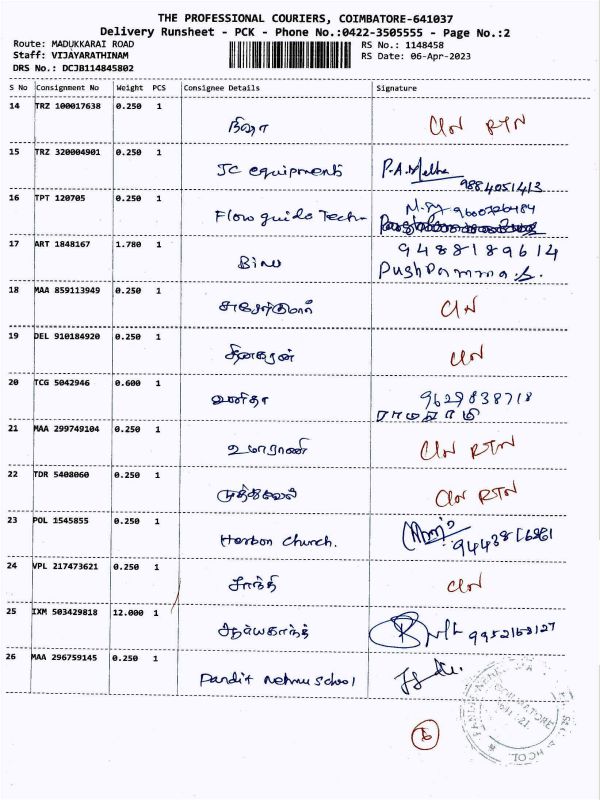 THE PROFESSIONAL COURIERS, COIMBATORE-641037
Delivery Runsheet - PCK - Phone No.:0422-3505555 - Page No.:2
Route: MADUKKARAI ROAD RS No.: 1148458
Staff: VIJAYARATHINAM RS Date: 06-Apr-2023
DRS No.: DCJB114845802
S No Consignment No Weight PCS Consignee Details Signature
14 TRZ 100017638 0.250 1
நிஷா C/N RTN
15 TRZ 320004901 0.250 1
JC equipments P.A.
9884051413
16 TPT 120705 0.250 1
Flow guide Tech
17 ART 1848167 1.780 1 9488189614
Binu Pushpamma.S.
18 MAA 859113949 0.250 1
C/N
19 DEL 910184920 0.250 1
தினகரன் C/N
20 TCG 5042946 0.600 1 9629838718
வனிதா ராமசாமி
21 MAA 299749104 0.250 1
உமாராணி C/N RTN
22 TDR 5408060 0.250 1
முத்துவேல் C/N RTN
23 POL 1545855 0.250 1
Church.
24 VPL 217473621 0.250 1
சாந்தி C/N
25 IXM 503429818 12.000 1
9952168127
26 MAA 296759145 0.250 1
Pandit Nehru School